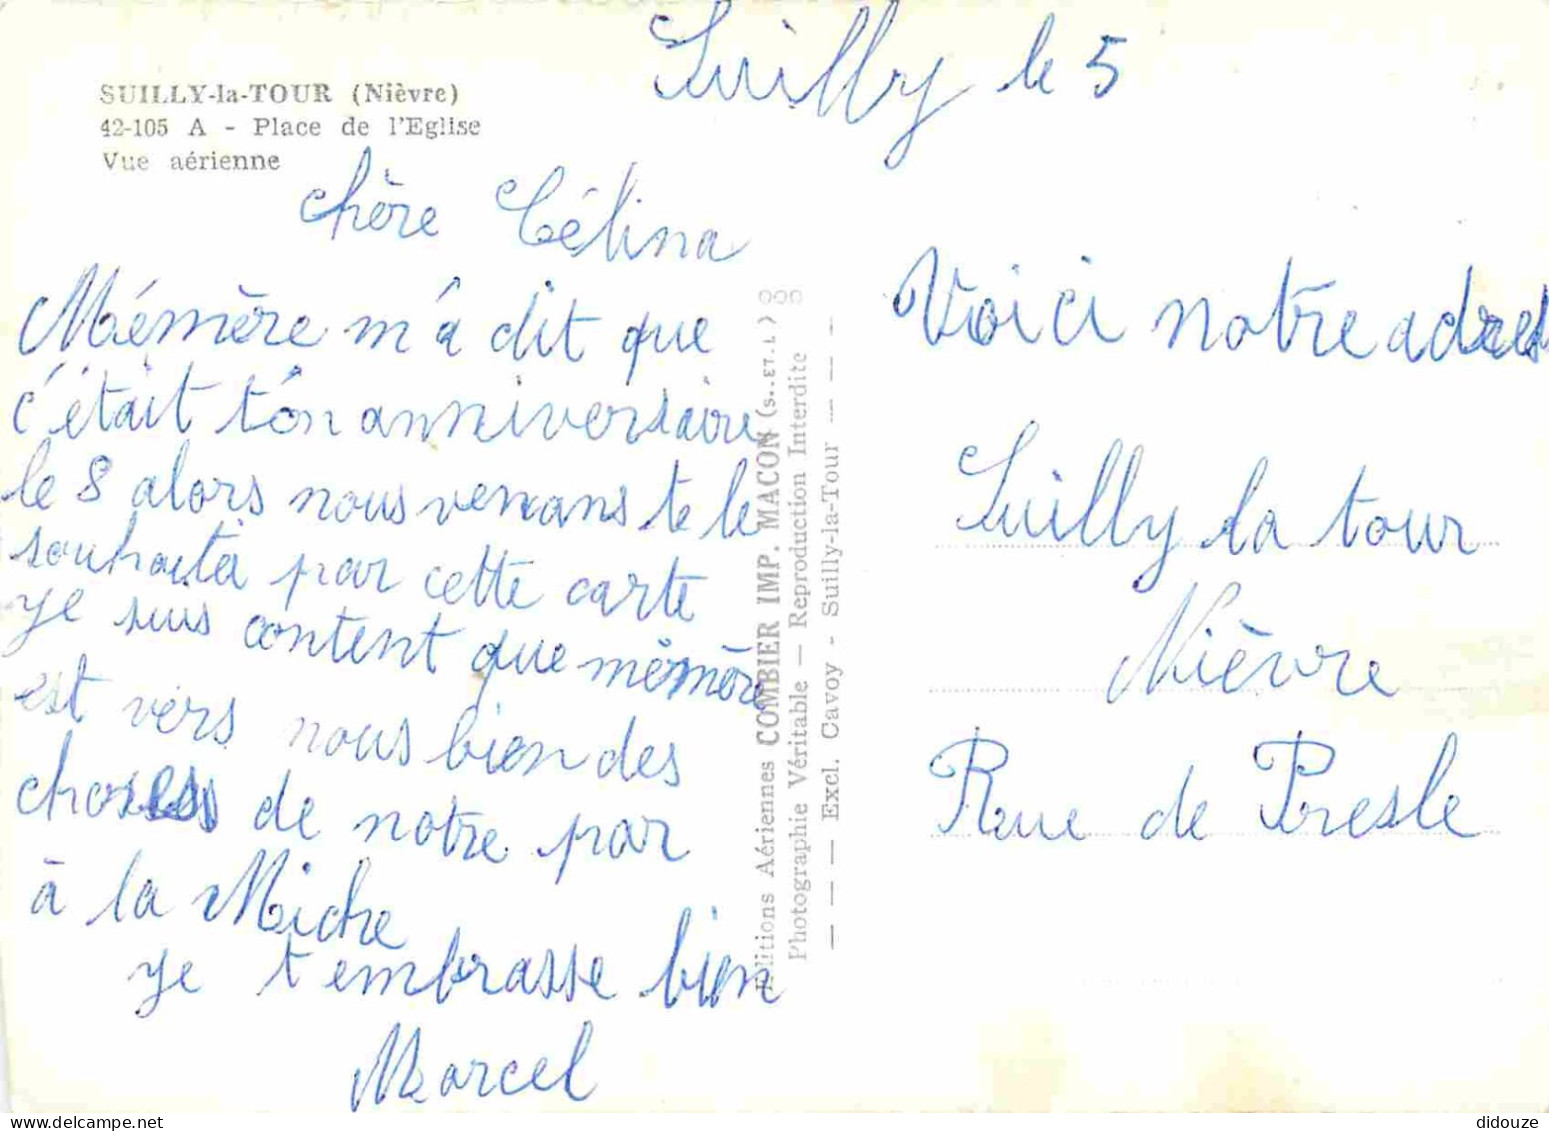 Suilly le 5
SUILLY-la-TOUR (Nièvre)
42-105 A - Place de l'Eglise
Vue aérienne
chère Célina
Mémère m'a dit que
c'était ton anniversaire
le 8 alors nous venans te le
souhaiter par cette carte
je suis content que mémère
est vers nous bien des
choses de notre par
à la Miche
je t embrasse bien
Marcel
Editions Aériennes COMBIER IMP. MACON (S..ET.L)
Photographie Véritable — Reproduction Interdite
— — — Excl. Cavoy - Suilly-la-Tour — — —
Voici notre adres
Suilly la tour
Nièvre
Rue de Presle
didouze